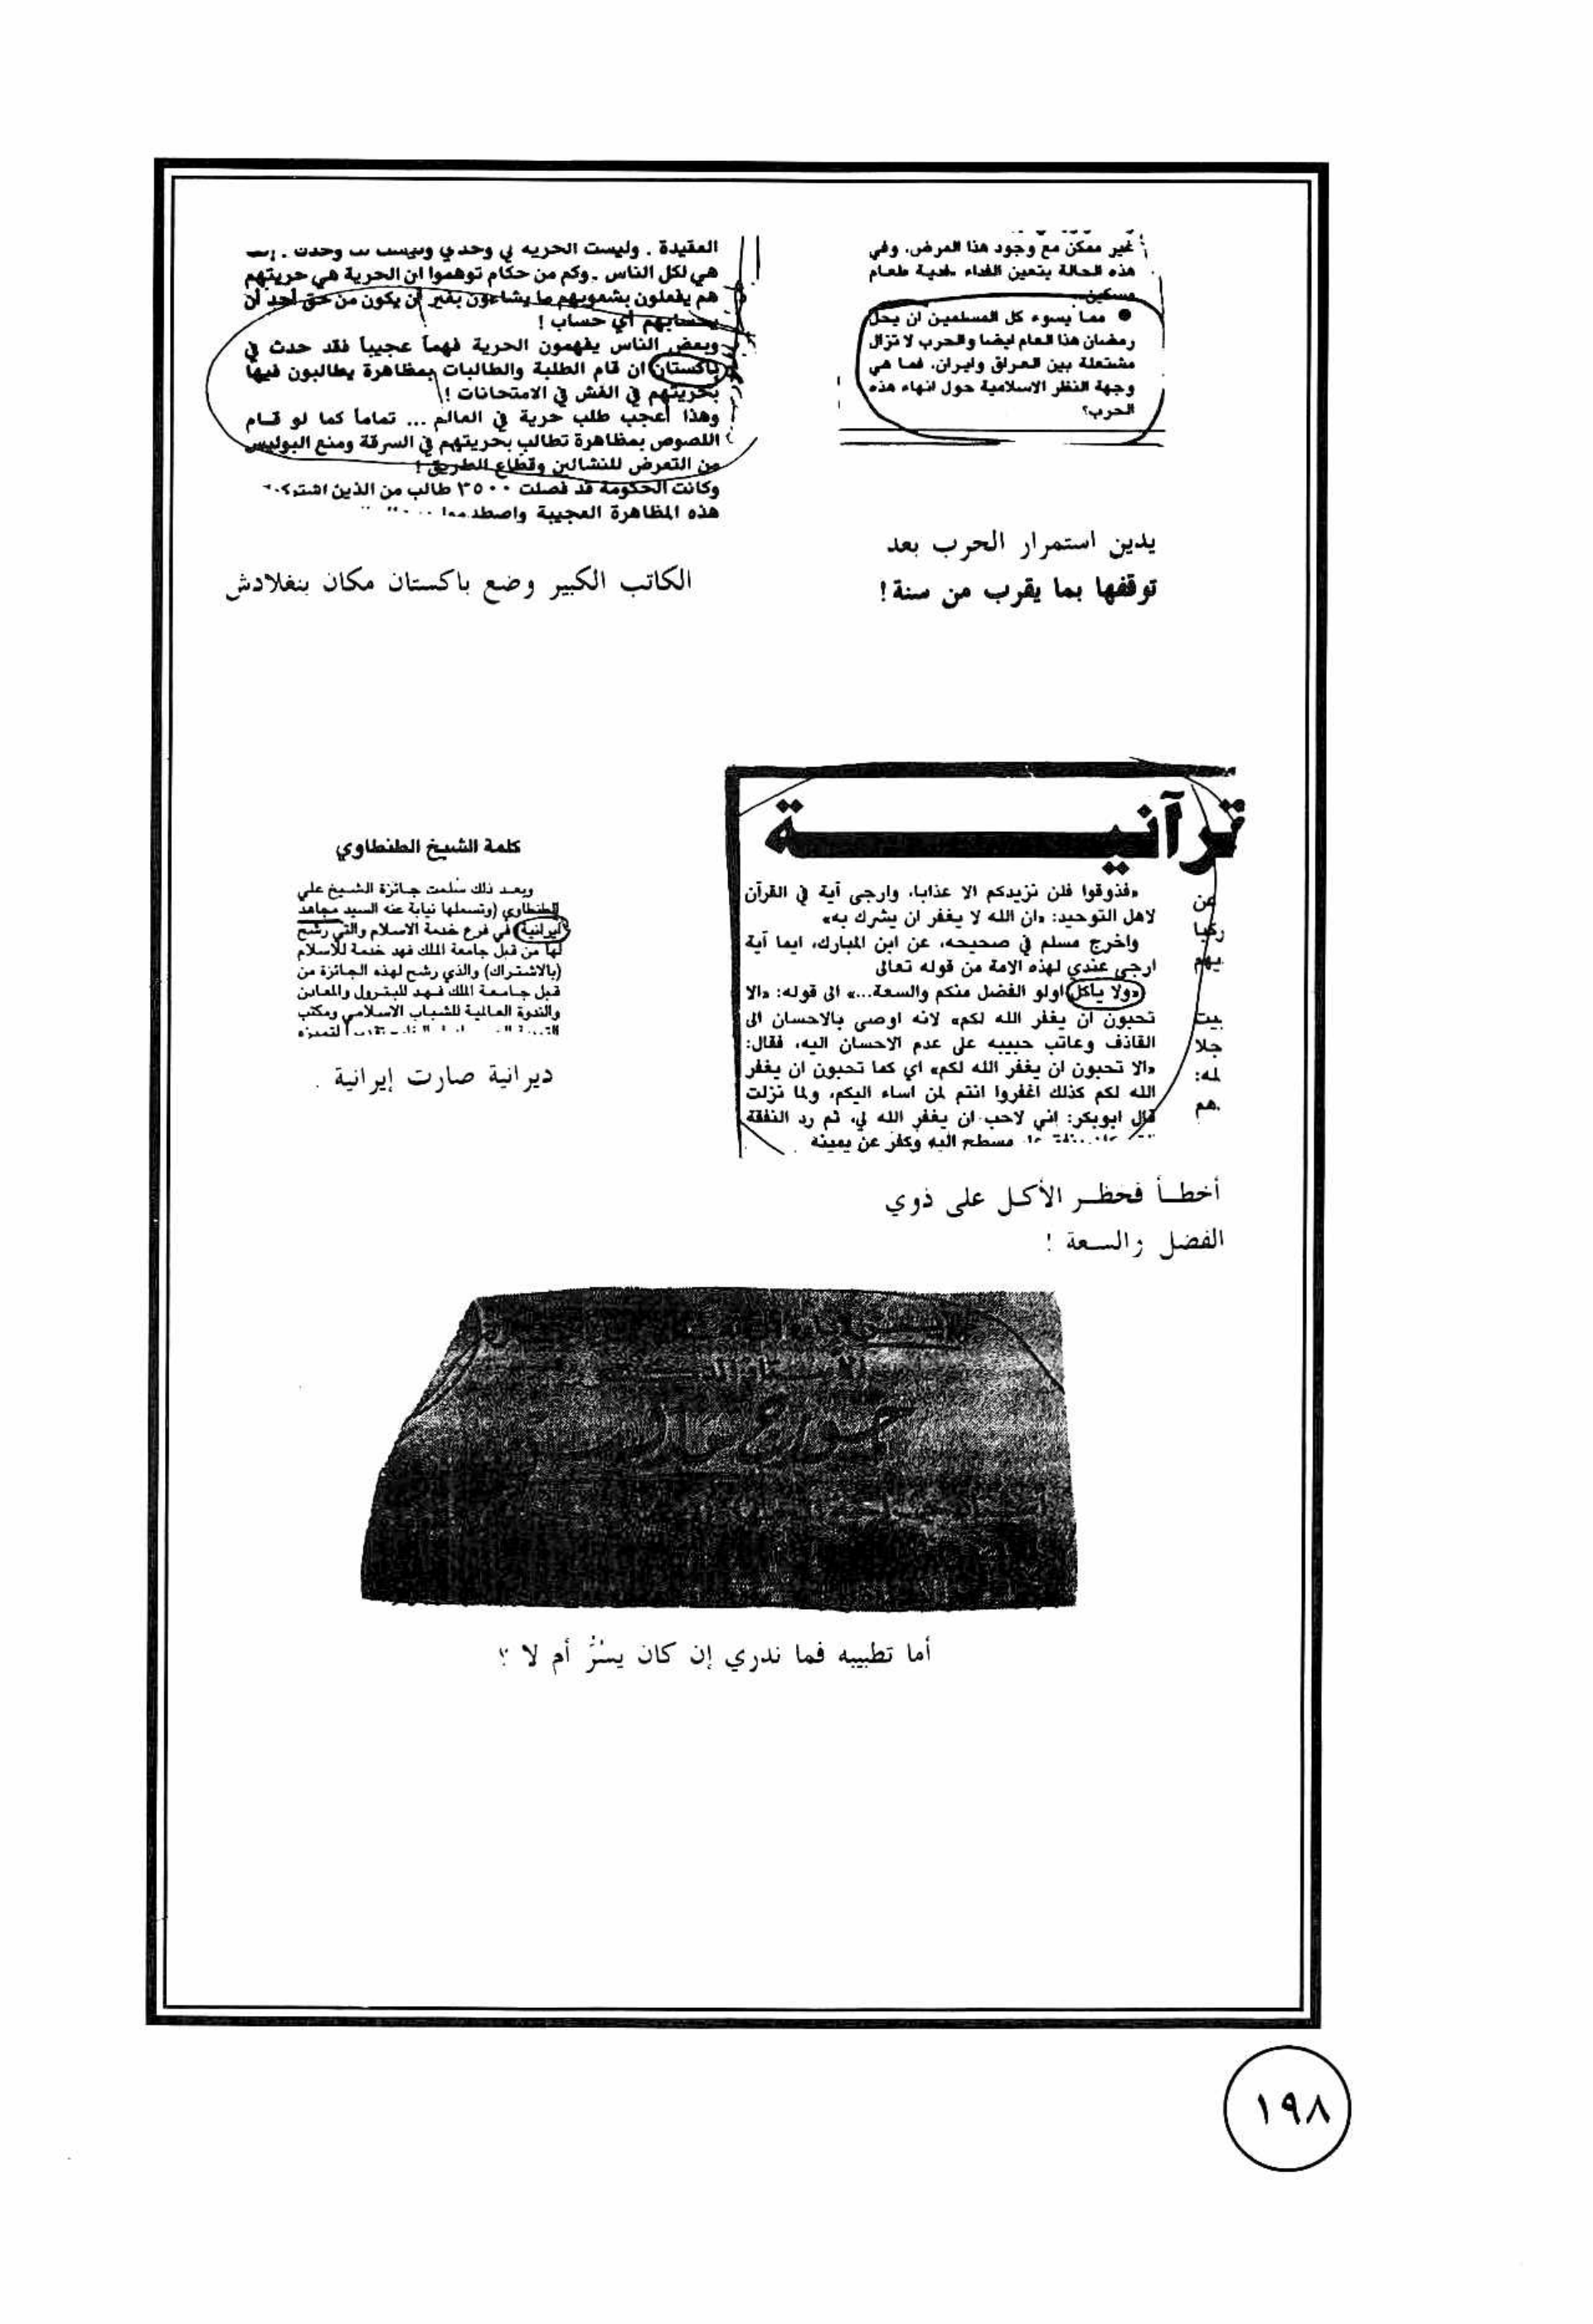 غير ممكن مع وجود هذا المرض، وفي
هذه الحالة يتعين الفداء فدية طعام
مسكين.
● مما يسوء كل المسلمين ان يحل
رمضان هذا العام ايضا والحرب لا تزال
مشتعلة بين العراق وايران، فما هي
وجهة النظر الاسلامية حول انهاء هذه
الحرب؟
يدين استمرار الحرب بعد
توقفها بما يقرب من سنة!
العقيدة . وليست الحرية لي وحدي وليست لك وحدك .
هي لكل الناس . وكم من حكام توهموا ان الحرية هي حريتهم
هم يفعلون بشعوبهم ما يشاءون بغير أن يكون من حق أحد أن
يحسابهم أي حساب !
وبعض الناس يفهمون الحرية فهماً عجيباً فقد حدث في
باكستان ان قام الطلبة والطالبات بمظاهرة يطالبون فيها
بحريتهم في الغش في الامتحانات !
وهذا أعجب طلب حرية في العالم ... تماماً كما لو قام
اللصوص بمظاهرة تطالب بحريتهم في السرقة ومنع البوليس
من التعرض للنشالين وقطاع الطريق !
وكانت الحكومة قد فصلت ٣٥٠٠ طالب من الذين
هذه المظاهرة العجيبة
الكاتب الكبير وضع باكستان مكان بنغلادش
قرآنية
«فذوقوا فلن نزيدكم الا عذابا، وارجى آية في القرآن
لاهل التوحيد: «ان الله لا يغفر ان يشرك به»
واخرج مسلم في صحيحه، عن ابن المبارك، ايما آية
ارجى عندي لهذه الامة من قوله تعالى
«ولا ياكل اولو الفضل منكم والسعة...» الى قوله: «الا
تحبون ان يغفر الله لكم» لانه اوصى بالاحسان الى
القاذف وعاتب حبيبه على عدم الاحسان اليه، فقال:
«الا تحبون ان يغفر الله لكم» اي كما تحبون ان يغفر
الله لكم كذلك اغفروا انتم لمن اساء اليكم، ولما نزلت
قال ابوبكر: إني لاحب ان يغفر الله لي، ثم رد النفقة
مسطح اليه وكفر عن يمينه
عن
يهم
بيت
جلا
له:
هم
أخطأ فحظر الأكل على ذوي
الفضل والسعة !
كلمة الشيخ الطنطاوي
وبعد ذلك سلمت جائزة الشيخ علي
الطنطاوي (وتسلمها نيابة عنه السيد مجاهد
ايرانية) في فرع خدمة الاسلام والتي رشح
لها من قبل جامعة الملك فهد خدمة للاسلام
(بالاشتراك) والذي رشح لهذه الجائزة من
قبل جامعة الملك فهد للبترول والمعادن
والندوة العالمية للشباب الاسلامي ومكتب
ديرانية صارت إيرانية .
أما تطبيبه فما ندري إن كان يسُرُّ أم لا ؟
١٩٨